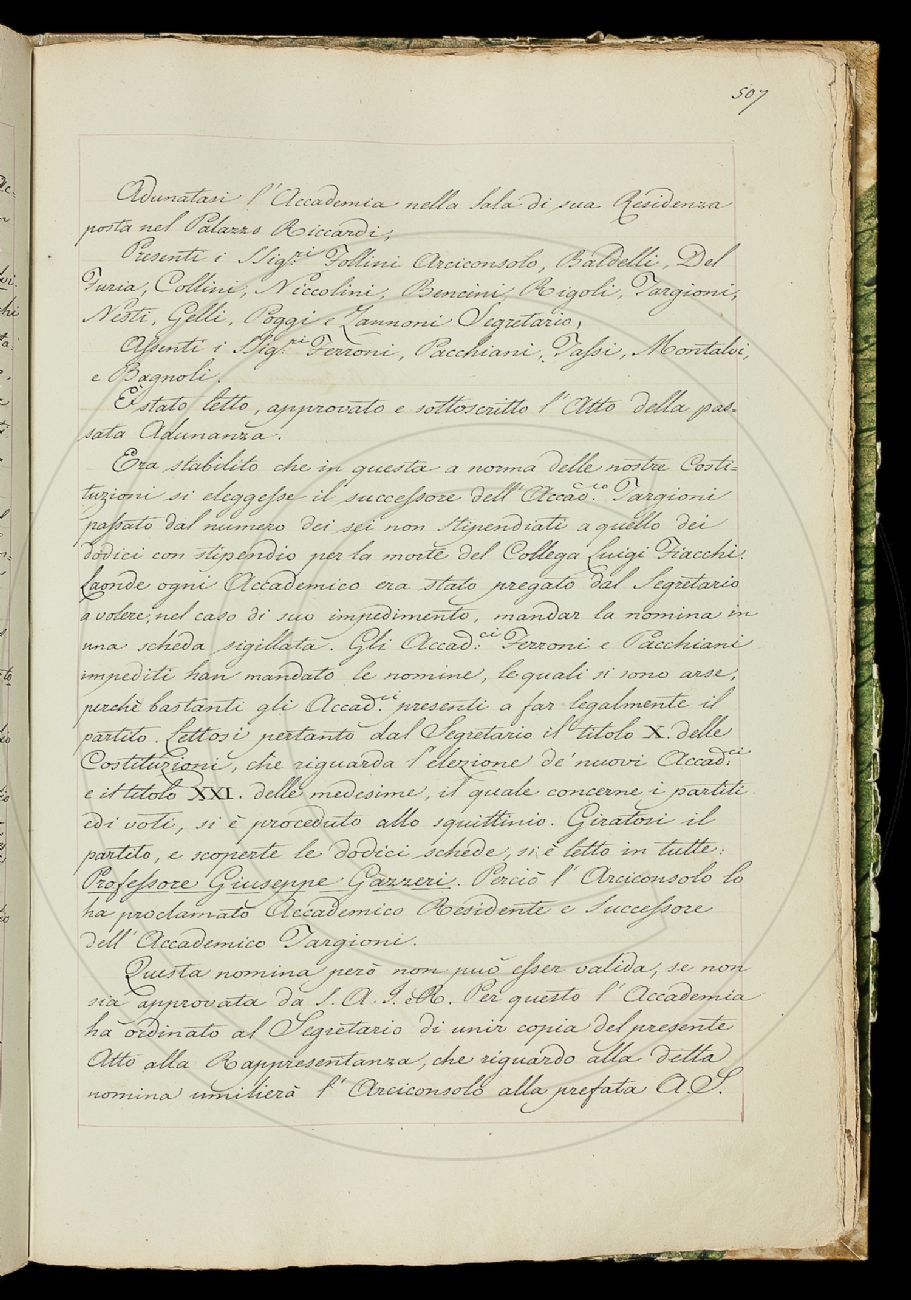 507
Adunatasi l'Accademia nella Sala di sua Residenza
posta nel Palazzo Riccardi;
Presenti i Sig.ri Follini Arciconsolo, Baldelli, Del
Furia, Collini, Niccolini, Bencini, Rigoli, Targioni,
Nesti, Gelli, Poggi e Zannoni Segretario;
Assenti i Sig.ri Ferroni, Pacchiani, Tassi, Montalvi,
e Bagnoli.
È stato letto, approvato e sottoscritto l'Atto della pas=
sata Adunanza.
Era stabilito che in questa a norma delle nostre Costi=
tuzioni si eleggesse il successore dell'Accad.co Targioni
passato dal numero dei sei non stipendiati a quello dei
dodici con stipendio per la morte del Collega Luigi Fiacchi.
Laonde ogni Accademico era stato pregato dal Segretario
a volere, nel caso di suo impedimento, mandar la nomina in
una scheda sigillata. Gli Accad.ci Ferroni e Pacchiani
impediti han mandato le nomine, le quali si sono arse,
perchè bastanti gli Accad.ci presenti a far legalmente il
partito. Lettosi pertanto dal Segretario il titolo X. delle
Costituzioni, che riguarda l'elezione de' nuovi Accad.ci
e il titolo XXI. delle medesime, il quale concerne i partiti
ed i voti, si è proceduto allo squittinio. Giratosi il
partito, e scoperte le dodici schede, si è letto in tutte:
Professore Giuseppe Gazzeri. Perciò l'Arciconsolo lo
ha proclamato Accademico Residente e Successore
dell'Accademico Targioni.
Questa nomina però non può esser valida, se non
sia approvata da S. A. I. e R. Per questo l'Accademia
ha ordinato al Segretario di unir copia del presente
Atto alla Rappresentanza, che riguardo alla detta
nomina umilierà l'Arciconsolo alla prefata A. S.